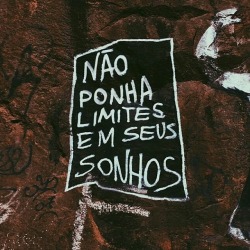 NÃO
PONHA
LIMITES
EM SEUS
SONHOS